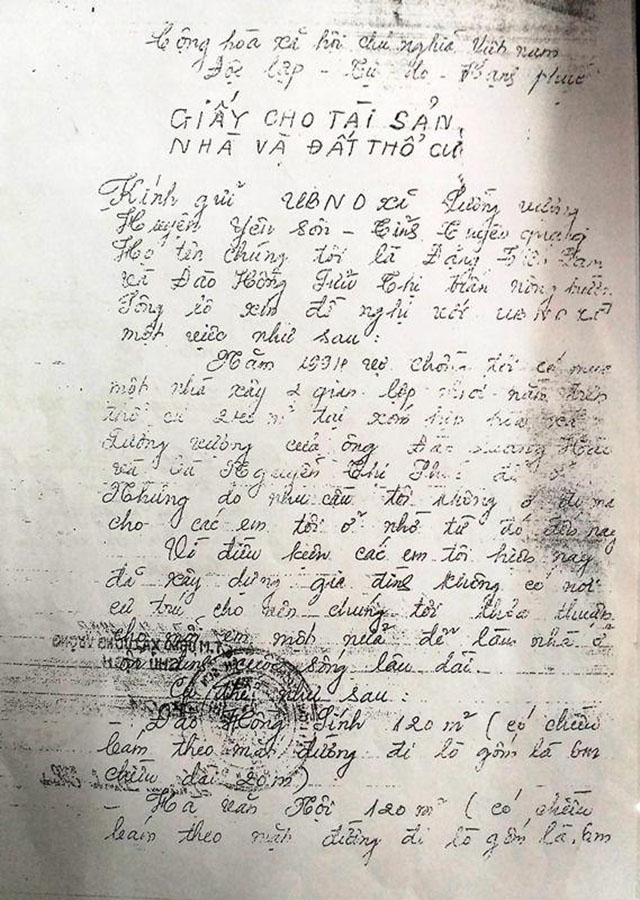 Cộng hòa xã hội chủ nghĩa Việt nam
Độc lập - Tự do - Hạnh phúc
GIẤY CHO TÀI SẢN,
NHÀ VÀ ĐẤT THỔ CƯ
Kính gửi UBND xã Lưỡng vượng
Huyện Yên sơn - Tỉnh Tuyên quang
Họ tên chúng tôi là Đặng
và Đào Hồng Thị trấn nông trường
Sông Lô xin đề nghị với UBND xã
một việc như sau:
Năm vợ chồng tôi có mua
một nhà xây 2 gian lợp nằm trên
thổ cư m² tại xóm xã
Lưỡng vượng của ông
và bà Nguyễn Thị
Nhưng do nhu cầu tôi không ở mà
cho các em tôi ở nhờ từ đó đến nay
Vì điều kiện các em tôi hiện nay
đã xây dựng gia đình không có nơi
cư trú cho nên chúng tôi thỏa thuận
cho mỗi em một nửa để làm nhà ở
ổn định cuộc sống lâu dài.
Cụ thể như sau:
- Đào Hồng Tính 120 m² (có chiều
bám theo mặt đường đi lò gốm là 6m
chiều dài 20m)
- Hà văn Nội 120 m² (có chiều
bám theo mặt đường đi lò gốm là 6m